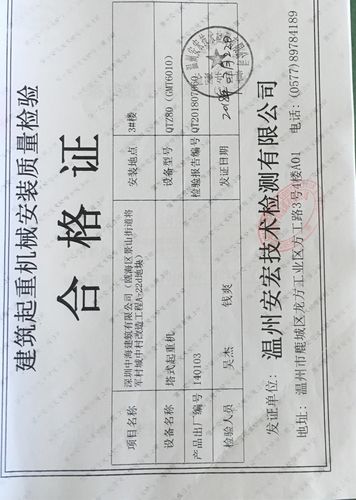 建筑起重机械安装质量检验
合格证
项目名称 深圳中海建筑有限公司（瓯海区景山街道将军村城中村改造工程A-22d地块） 安装地点 3#楼
设备名称 塔式起重机 设备型号 QTZ80（GMT6010）
产品出厂编号 140103 检验报告编号
检验人员 吴杰 钱爽 发证日期
发证单位：温州安宏技术检测有限公司
地址：温州市鹿城区龙方工业区方工路3号4楼A01 电话：(0577)89784189